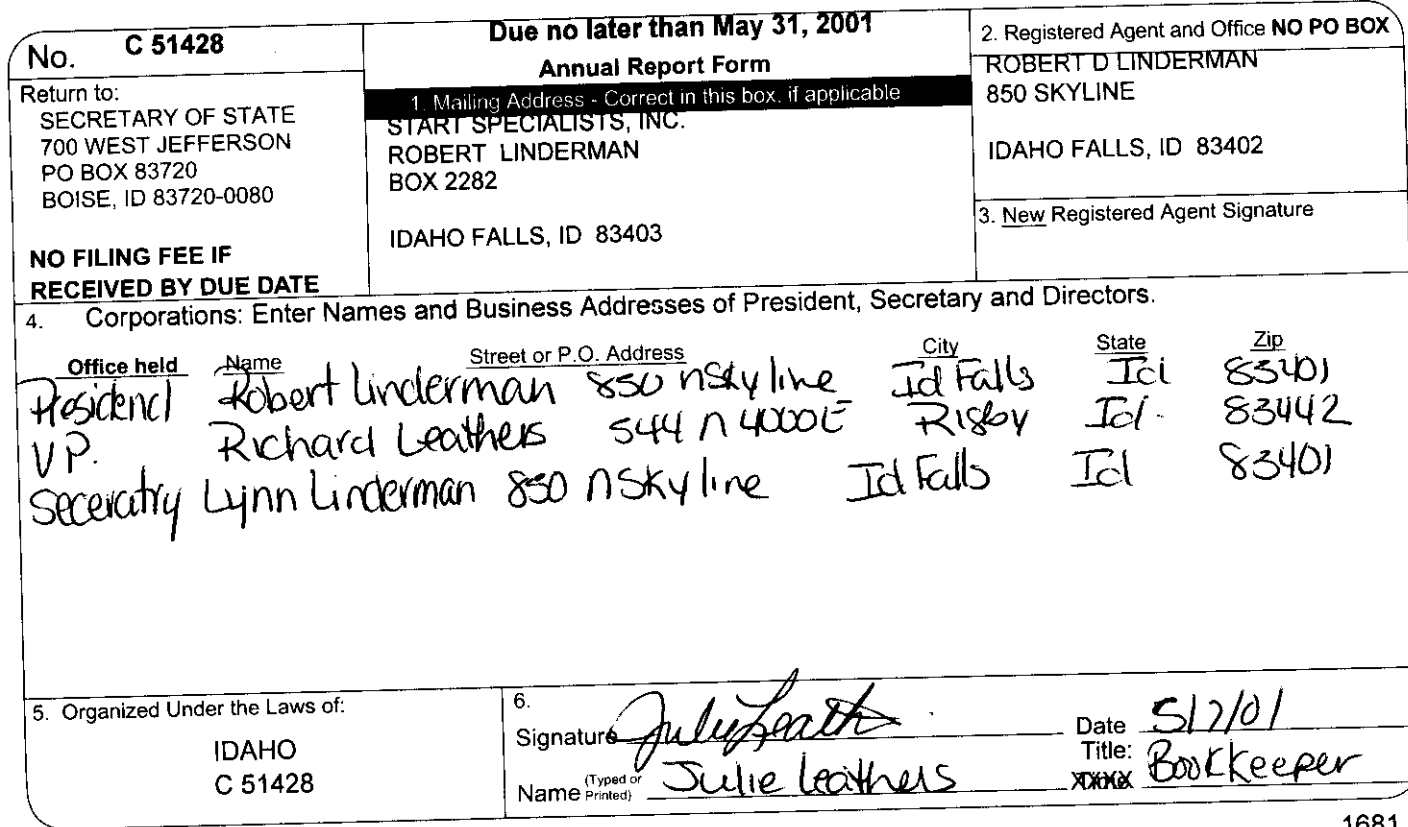 No. C 51428
Return to:
SECRETARY OF STATE
700 WEST JEFFERSON
PO BOX 83720
BOISE, ID 83720-0080
NO FILING FEE IF
RECEIVED BY DUE DATE
Due no later than May 31, 2001
Annual Report Form
1. Mailing Address - Correct in this box, if applicable
START SPECIALISTS, INC.
ROBERT LINDERMAN
BOX 2282
IDAHO FALLS, ID 83403
2. Registered Agent and Office NO PO BOX
ROBERT D LINDERMAN
850 SKYLINE
IDAHO FALLS, ID 83402
3. New Registered Agent Signature
4. Corporations: Enter Names and Business Addresses of President, Secretary and Directors.
Office held Name Street or P.O. Address City State Zip
President Robert Linderman 850 n Skyline Id Falls Id 83401
VP. Richard Leathers 544 n 4000 E Rigby Id. 83442
Seceratry Lynn Linderman 850 n Skyline Id Falls Id 83401
5. Organized Under the Laws of:
IDAHO
C 51428
6.
Signature Julie Leath
Date 5/7/01
Name (Typed or Printed) Julie Leathers
Title: Bookkeeper
1681